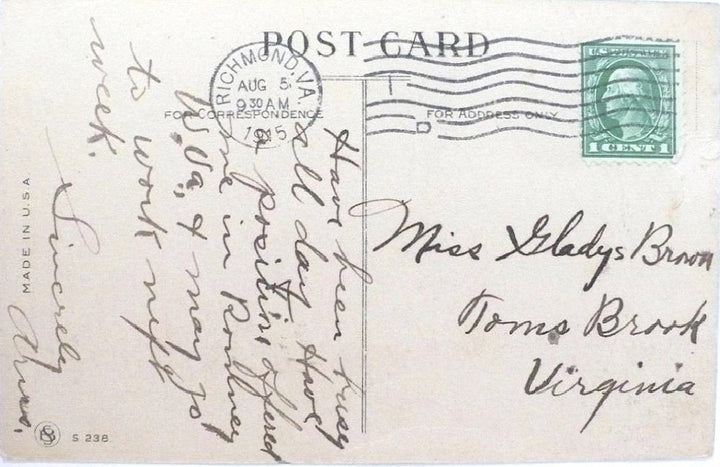 POST CARD
RICHMOND, VA.
AUG 5
9 30 AM
1915
FOR CORRESPONDENCE
FOR ADDRESS ONLY
U.S. POSTAGE
1 CENT 1
Have been busy
all day. Have
a position offered
me in Romney
W.Va., & may go
to work next
week.
Sincerely
Miss Gladys Brown
Toms Brook
Virginia
MADE IN U.S.A.
S 238